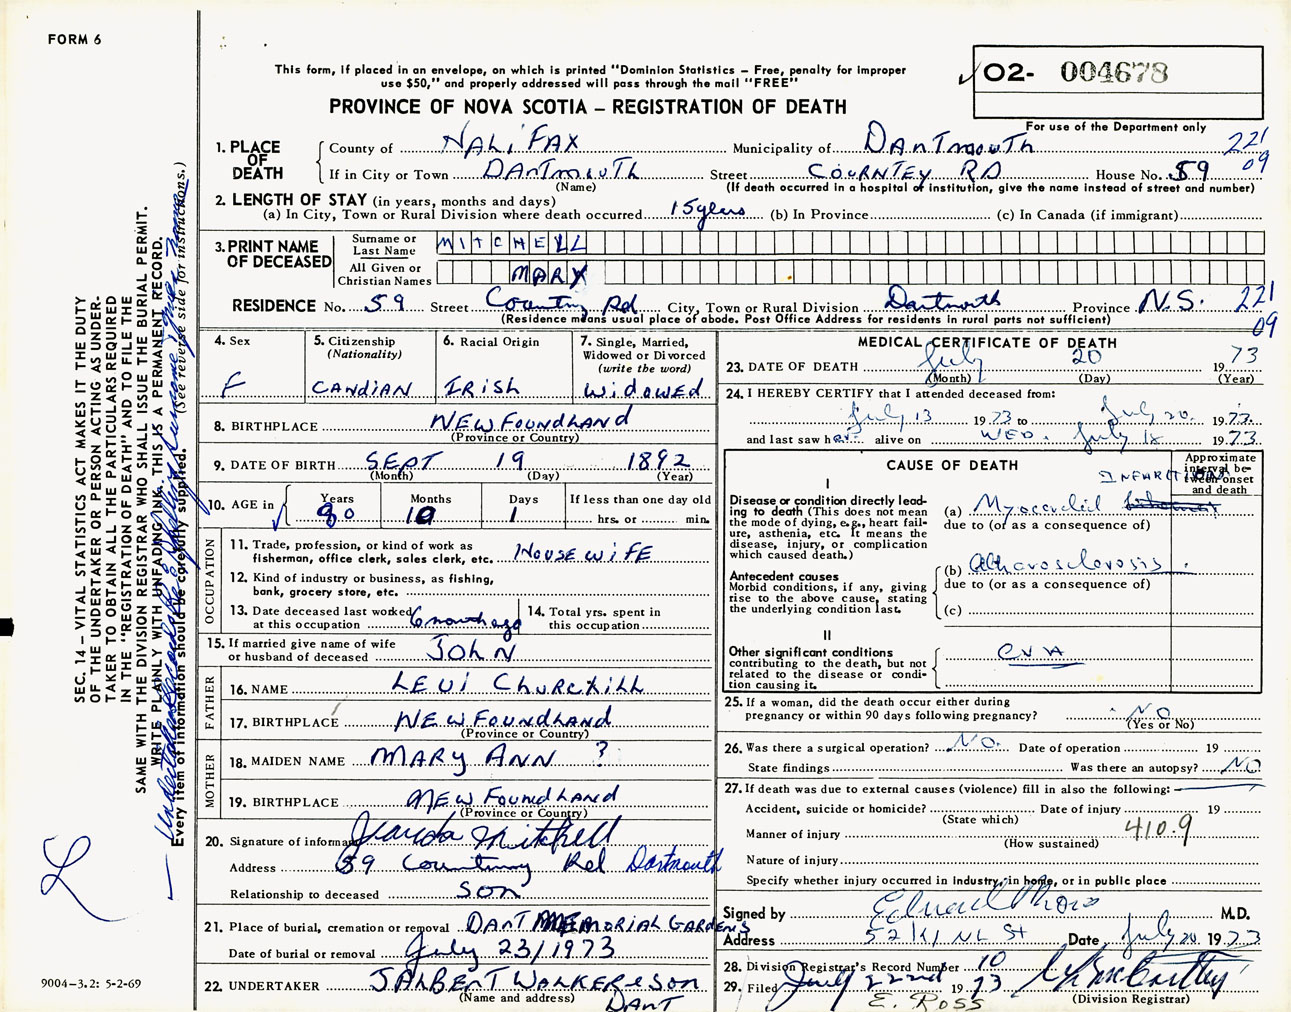 FORM 6
This form, if placed in an envelope, on which is printed "Dominion Statistics – Free, penalty for improper
use $50," and properly addressed will pass through the mail "FREE"
PROVINCE OF NOVA SCOTIA – REGISTRATION OF DEATH
02- 004678
For use of the Department only
221
09
1. PLACE OF DEATH
County of HALIFAX Municipality of DARTMOUTH
If in City or Town DARTMOUTH Street COURNTEY RD House No. 59
(Name) (If death occurred in a hospital of institution, give the name instead of street and number)
2. LENGTH OF STAY (in years, months and days)
(a) In City, Town or Rural Division where death occurred 15 years (b) In Province (c) In Canada (if immigrant)
3. PRINT NAME OF DECEASED
Surname or Last Name MITCHELL
All Given or Christian Names MARY
RESIDENCE No. 59 Street Rd City, Town or Rural Division Dartmouth Province N.S. 221
09
(Residence means usual place of abode. Post Office Address for residents in rural parts not sufficient)
4. Sex F
5. Citizenship (Nationality) CANDIAN
6. Racial Origin IRISH
7. Single, Married, Widowed or Divorced (write the word) WIDOWED
8. BIRTHPLACE NEWFOUNDLAND
(Province or Country)
9. DATE OF BIRTH SEPT 19 1892
(Month) (Day) (Year)
10. AGE in Years 80 Months 10 Days 1 If less than one day old hrs. or min.
OCCUPATION
11. Trade, profession, or kind of work as
fisherman, office clerk, sales clerk, etc. HOUSEWIFE
12. Kind of industry or business, as fishing,
bank, grocery store, etc.
13. Date deceased last worked
at this occupation 6 month ago
14. Total yrs. spent in
this occupation
15. If married give name of wife
or husband of deceased JOHN
FATHER
16. NAME LEVI CHURCHILL
17. BIRTHPLACE NEWFOUNDLAND
(Province or Country)
MOTHER
18. MAIDEN NAME MARY ANN ?
19. BIRTHPLACE NEWFOUNDLAND
(Province or Country)
20. Signature of informant Mitchell
Address 59 Rd Dartmouth
Relationship to deceased SON
21. Place of burial, cremation or removal DART MEMORIAL GARDENS
Date of burial or removal July 23/1973
22. UNDERTAKER J ALBERT WALKER & SON
(Name and address) DART
MEDICAL CERTIFICATE OF DEATH
23. DATE OF DEATH July 20 1973
(Month) (Day) (Year)
24. I HEREBY CERTIFY that I attended deceased from:
July 13 1973 to July 20 1973.
and last saw her alive on WED. July 18 1973
CAUSE OF DEATH
Approximate interval between onset and death
I
Disease or condition directly leading to death (This does not mean the mode of dying, e.g., heart failure, asthenia, etc. It means the disease, injury, or complication which caused death.)
INFARCTION
(a) Myocardial
due to (or as a consequence of)
Antecedent causes
Morbid conditions, if any, giving rise to the above cause, stating the underlying condition last.
(b) Atherosclerosis
due to (or as a consequence of)
(c)
II
Other significant conditions
contributing to the death, but not related to the disease or condition causing it.
CVA
25. If a woman, did the death occur either during
pregnancy or within 90 days following pregnancy? NO
(Yes or No)
26. Was there a surgical operation? NO. Date of operation 19
State findings Was there an autopsy? NO
27. If death was due to external causes (violence) fill in also the following:
Accident, suicide or homicide? Date of injury 19
(State which)
Manner of injury 410.9
(How sustained)
Nature of injury
Specify whether injury occurred in industry, in home, or in public place
Signed by M.D.
Address St Date July 20 1973
28. Division Registrar's Record Number 10
29. Filed July 22nd 1973
E. ROSS
(Division Registrar)
SEC. 14 – VITAL STATISTICS ACT MAKES IT THE DUTY
OF THE UNDERTAKER OR PERSON ACTING AS UNDER-
TAKER TO OBTAIN ALL THE PARTICULARS REQUIRED
IN THE "REGISTRATION OF DEATH" AND TO FILE THE
SAME WITH THE DIVISION REGISTRAR WHO SHALL ISSUE THE BURIAL PERMIT.
WRITE PLAINLY WITH UNFADING INK. THIS IS A PERMANENT RECORD.
Every item of information should be carefully supplied. (See reverse side for instructions.)
9004-3.2: 5-2-69